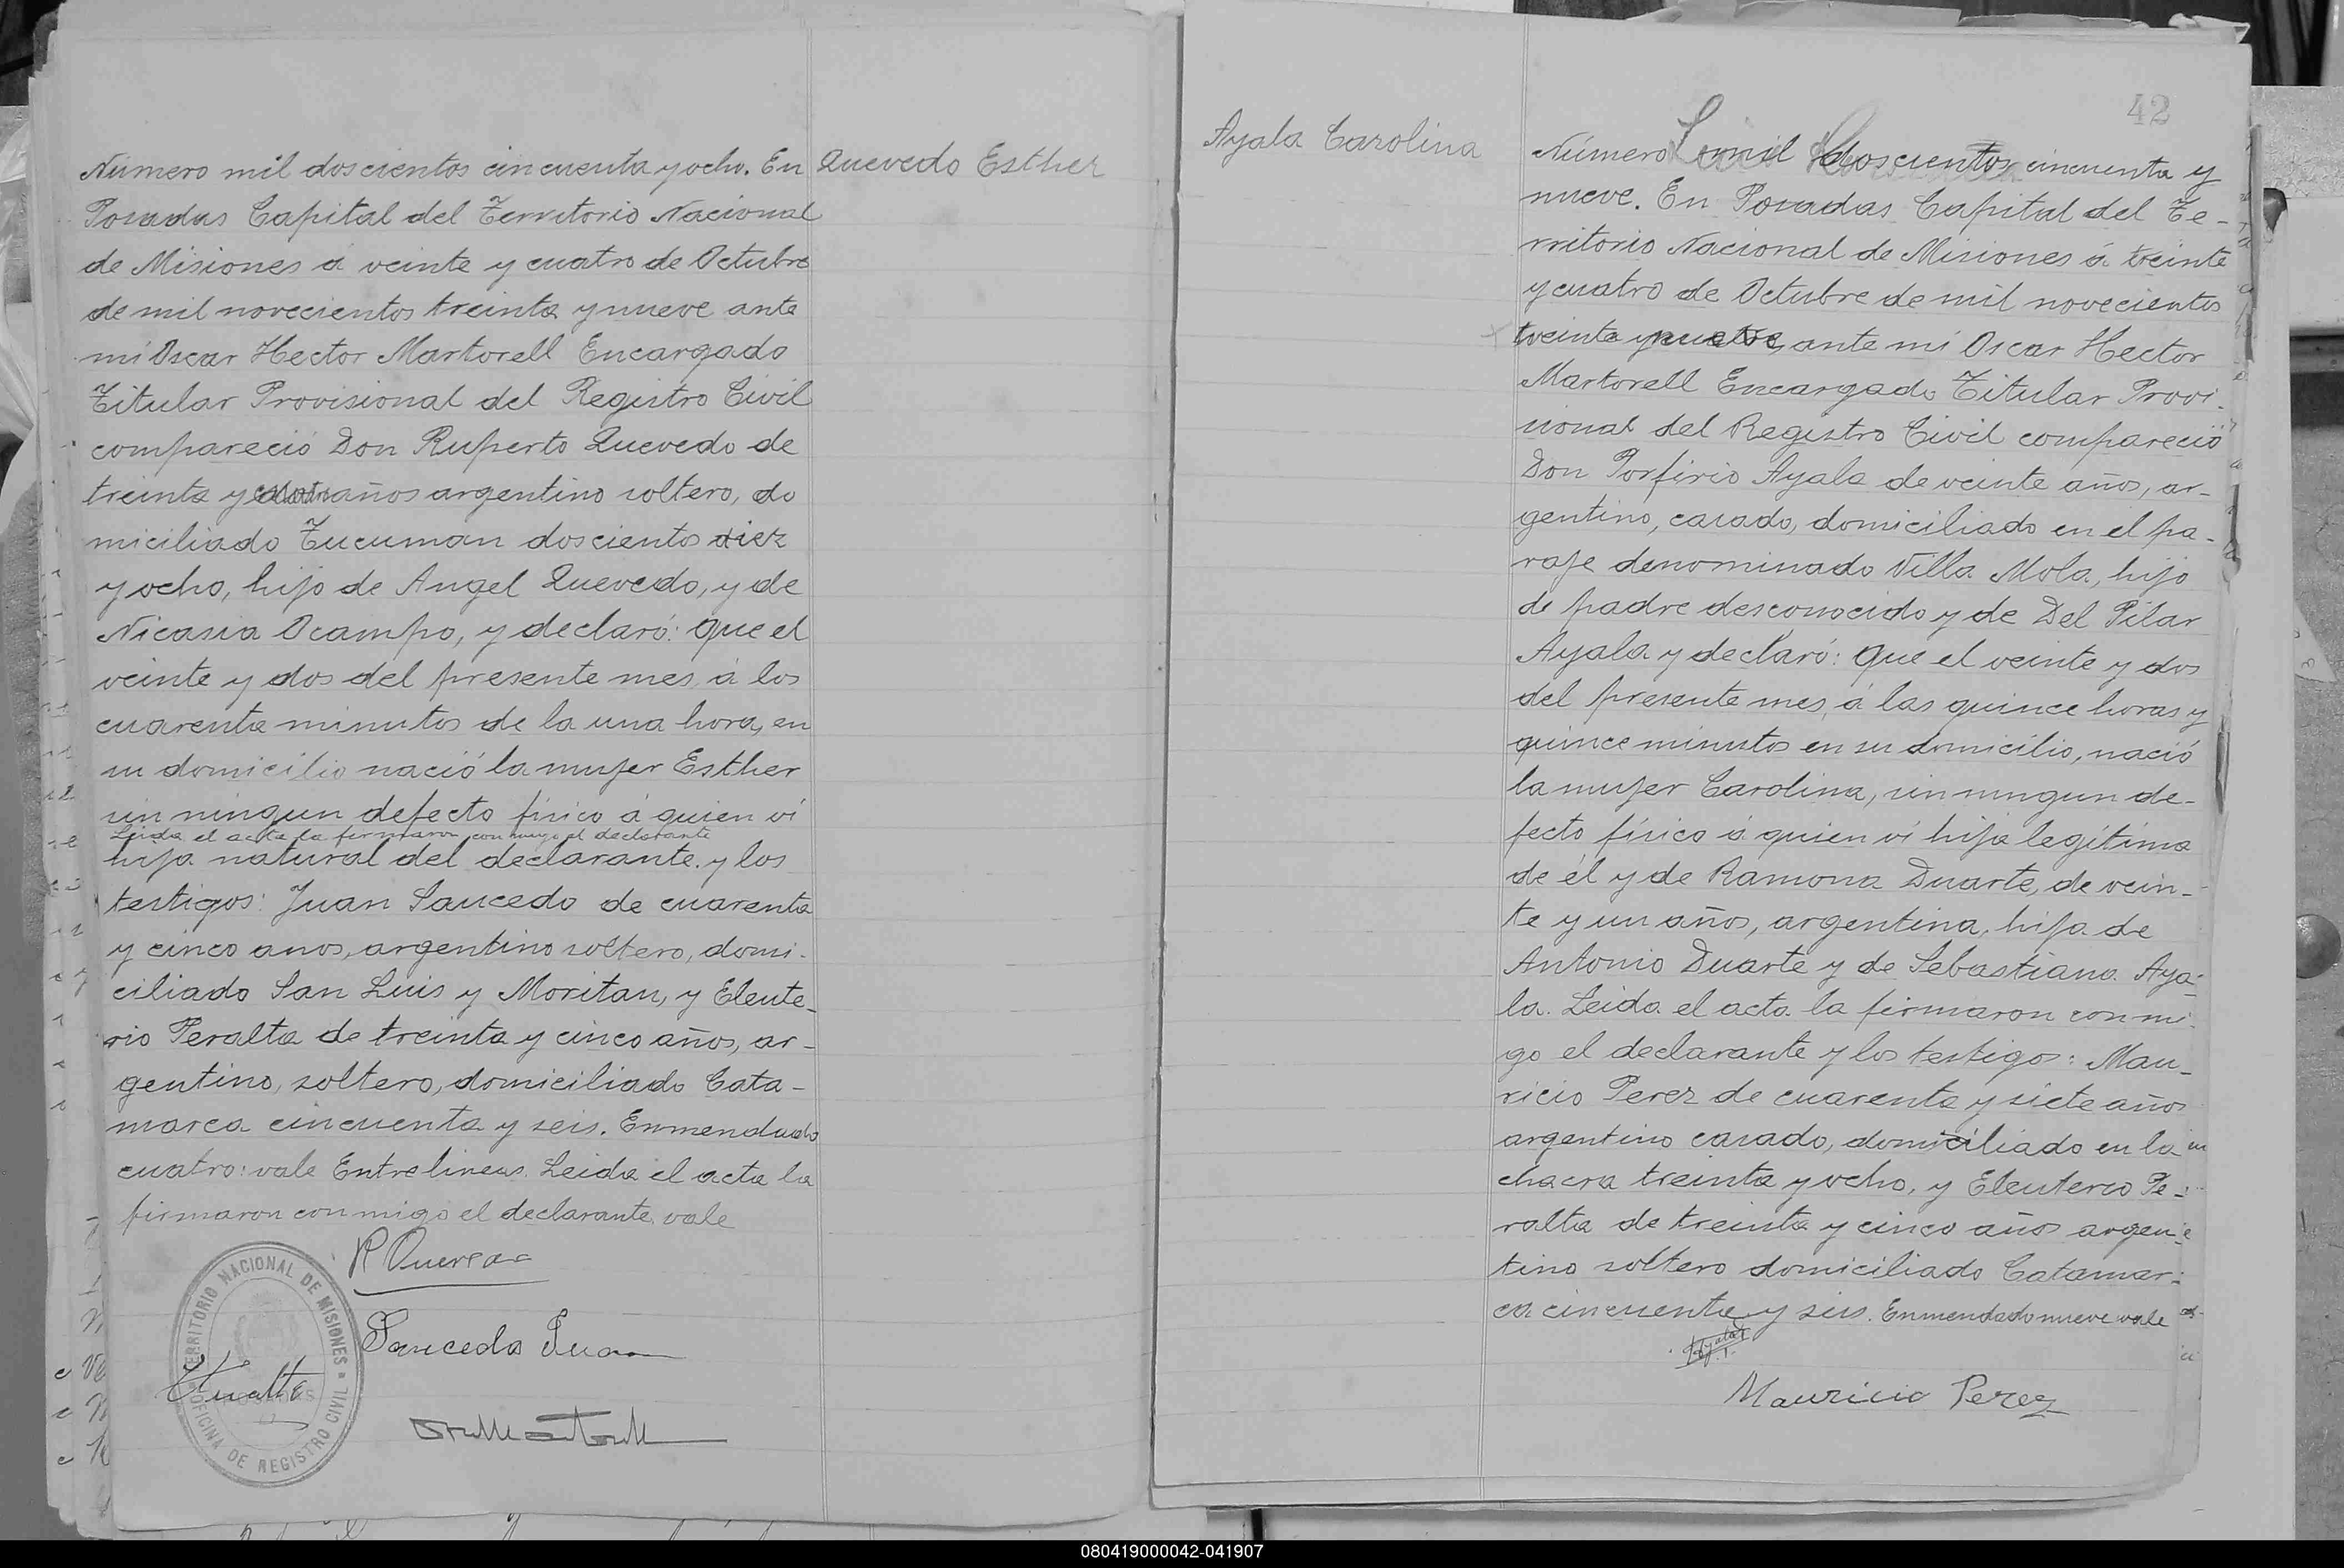 Número mil doscientos cincuenta y ocho. En
Posadas Capital del Territorio Nacional
de Misiones á veinte y cuatro de Octubre
de mil novecientos treinta y nueve ante
mi Oscar Hector Martorell Encargado
Titular Provisional del Registro Civil
compareció Don Ruperto Quevedo de
treinta y cuatro años argentino soltero, do
miciliado Tucuman doscientos diez
y ocho, hijo de Angel Quevedo, y de
Nicasia Ocampo, y declaró: que el
veinte y dos del presente mes, á los
cuarenta minutos de la una hora, en
su domicilio nació la mujer Esther
sin ningun defecto fisico á quien ví
Leida el acta la firmaron con migo el declarante
hija natural del declarante. y los
testigos: Juan Saucedo de cuarenta
y cinco anos, argentino soltero, domi-
ciliado San Luis y Moritan, y Eleute-
rio Peralta de treinta y cinco años, ar-
gentino, soltero, domiciliado Cata-
marca cincuenta y seis. Enmendado
cuatro: vale Entrelineas. Leida el acta la
firmaron con migo el declarante, vale
Quevedo Esther
TERRITORIO NACIONAL DE MISIONES
OFICINA DE REGISTRO CIVIL
POSADAS
Saucedo Juan
42
Ayala Carolina
Número mil doscientos cincuenta y
nueve. En Posadas Capital del Te-
rritorio Nacional de Misiones á veinte
y cuatro de Octubre de mil novecientos
treinta y nueve, ante mi Oscar Hector
Martorell Encargado Titular Provi-
sional del Registro Civil compareció
Don Porfirio Ayala de veinte años, ar-
gentino, casado, domiciliado en el pa-
raje denominado Villa Mola, hijo
de padre desconocido y de Del Pilar
Ayala y declaró: que el veinte y dos
del presente mes, á las quince horas y
quince minutos en su domicilio, nació
la mujer Carolina, sin ningun de-
fecto físico á quien ví hija legítima
de él y de Ramona Duarte, de vein-
te y un años, argentina, hija de
Antonio Duarte y de Sebastiana Aya-
la. Leida el acta la firmaron con mi-
go el declarante y los testigos: Mau-
ricio Perez de cuarenta y siete años
argentino casado, domiciliado en la
chacra treinta y ocho, y Eleuterio Pe-
ralta de treinta y cinco años argen-
tino soltero domiciliado Catamar-
ca cincuenta y seis. Enmendado nueve vale
Mauricio Perez
080419000042-041907